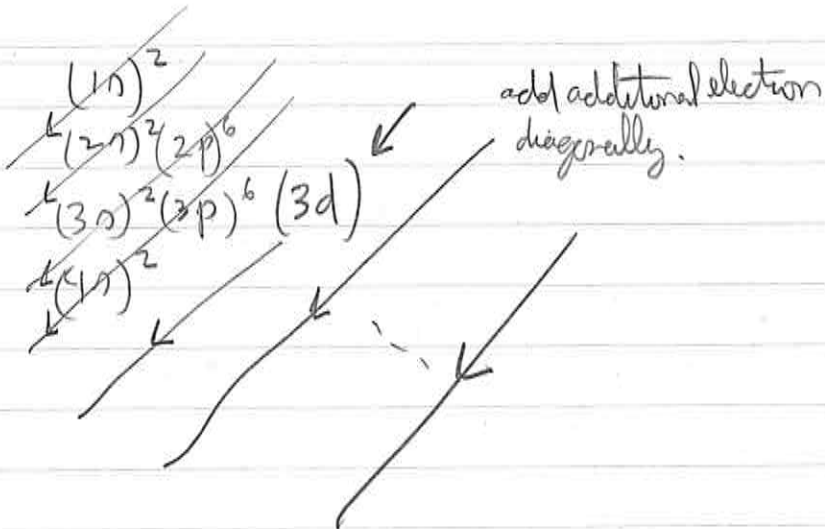 (1s)²
(2s)²(2p)⁶
(3s)²(3p)⁶ (3d)
(4s)²
add additional electron
diagonally.